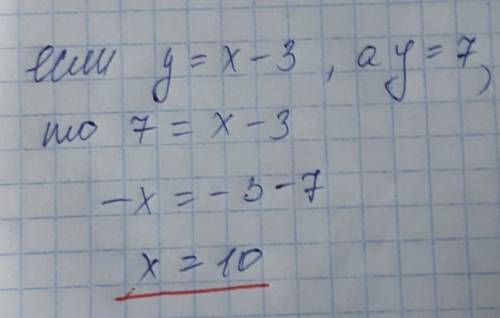 если y = x - 3, а y = 7,
то 7 = x - 3
-x = -3 - 7
x = 10